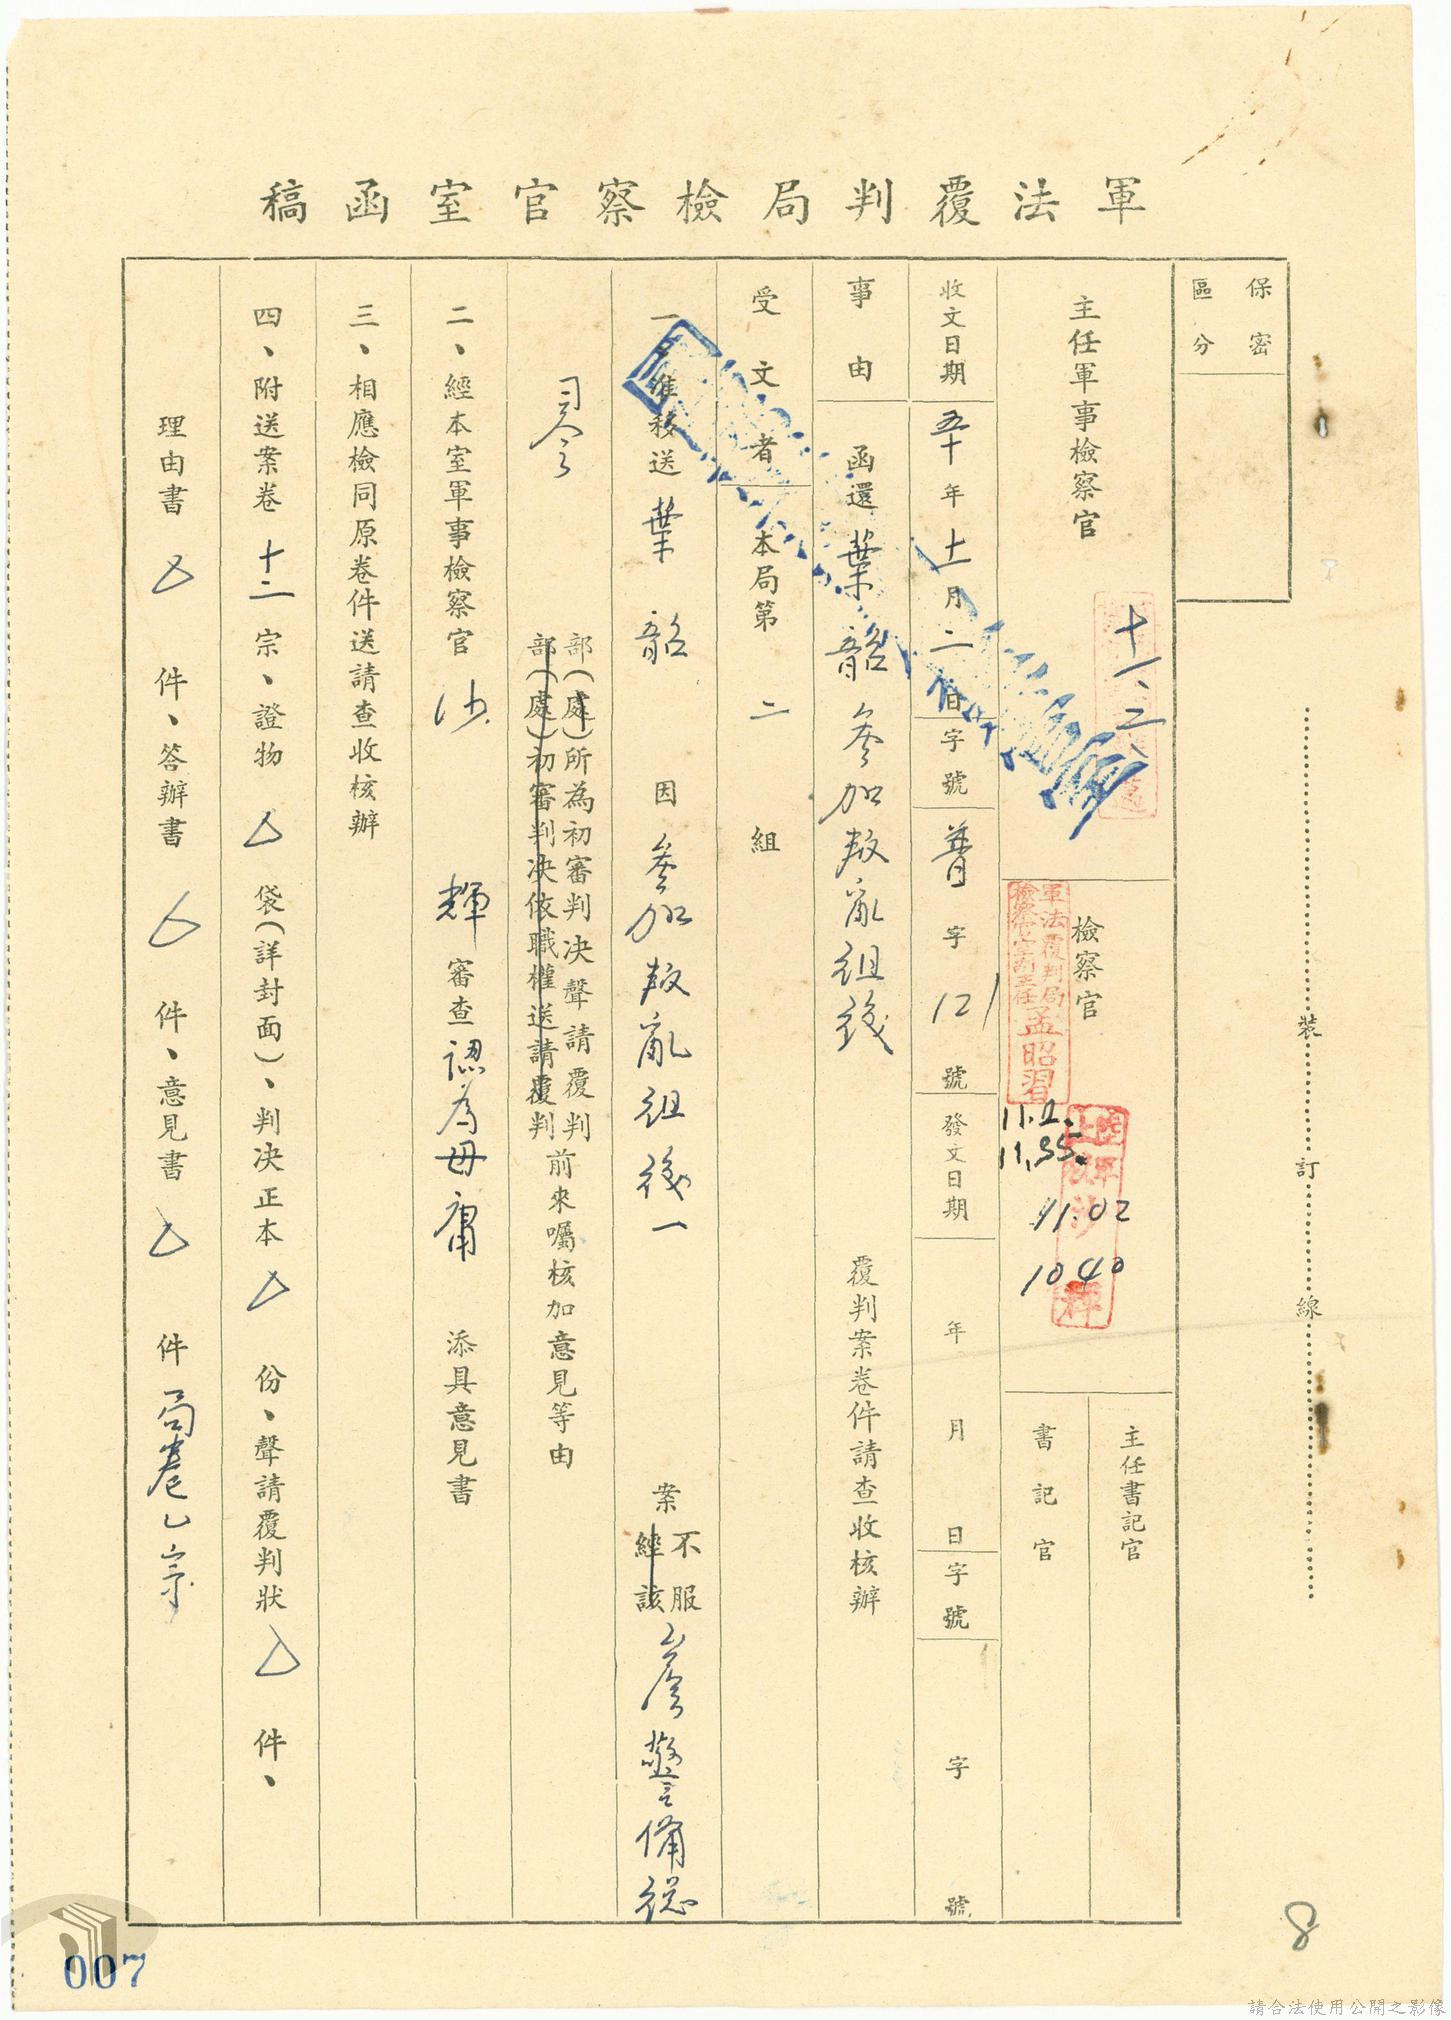 軍法覆判局檢察官室函稿
保密
區分
主任軍事檢察官
十一、二、
檢察官
軍法覆判局
檢察官室副主任
孟昭習
11.2.
11.35.
陸軍
沙
輝
11.02
1040
主任書記官
書記官
收文日期 五十年十一月二日 字號 普字121號 發文日期 年 月 日 字號 字 號
事由 函還葉韶參加叛亂組織 覆判案卷件請查收核辦
受文者 本局第二組
一、准移送葉韶 因參加叛亂組織一 案
不服
經該
台灣警備總
司令
部(處)所為初審判決聲請覆判
部(處)初審判決依職權送請覆判
前來囑核加意見等由
二、經本室軍事檢察官沙 輝審查認為毋庸 添具意見書
三、相應檢同原卷件送請查收核辦
四、附送案卷十二宗、證物 袋(詳封面)、判決正本 份、聲請覆判狀 件、
理由書 件、答辯書 件、意見書 件 局卷乙宗
裝
訂
線
8
007
請合法使用公開之影像